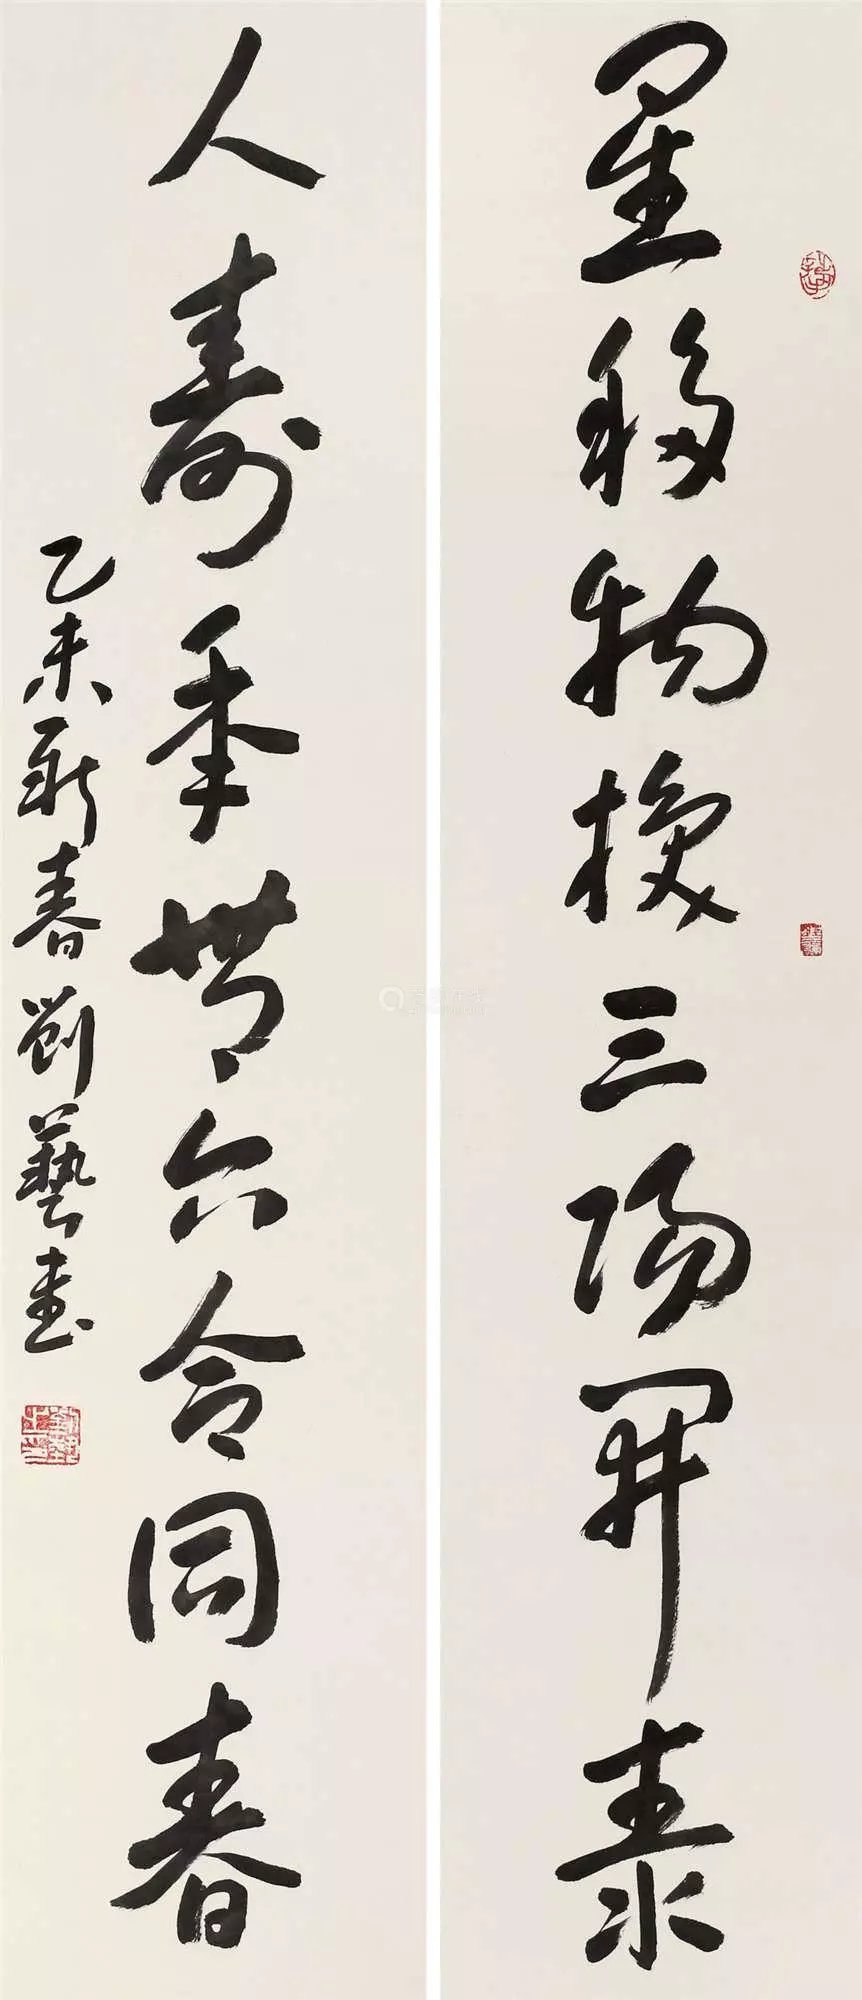 星移物換三陽開泰
人壽年豐六合同春
乙未新春劉藝書